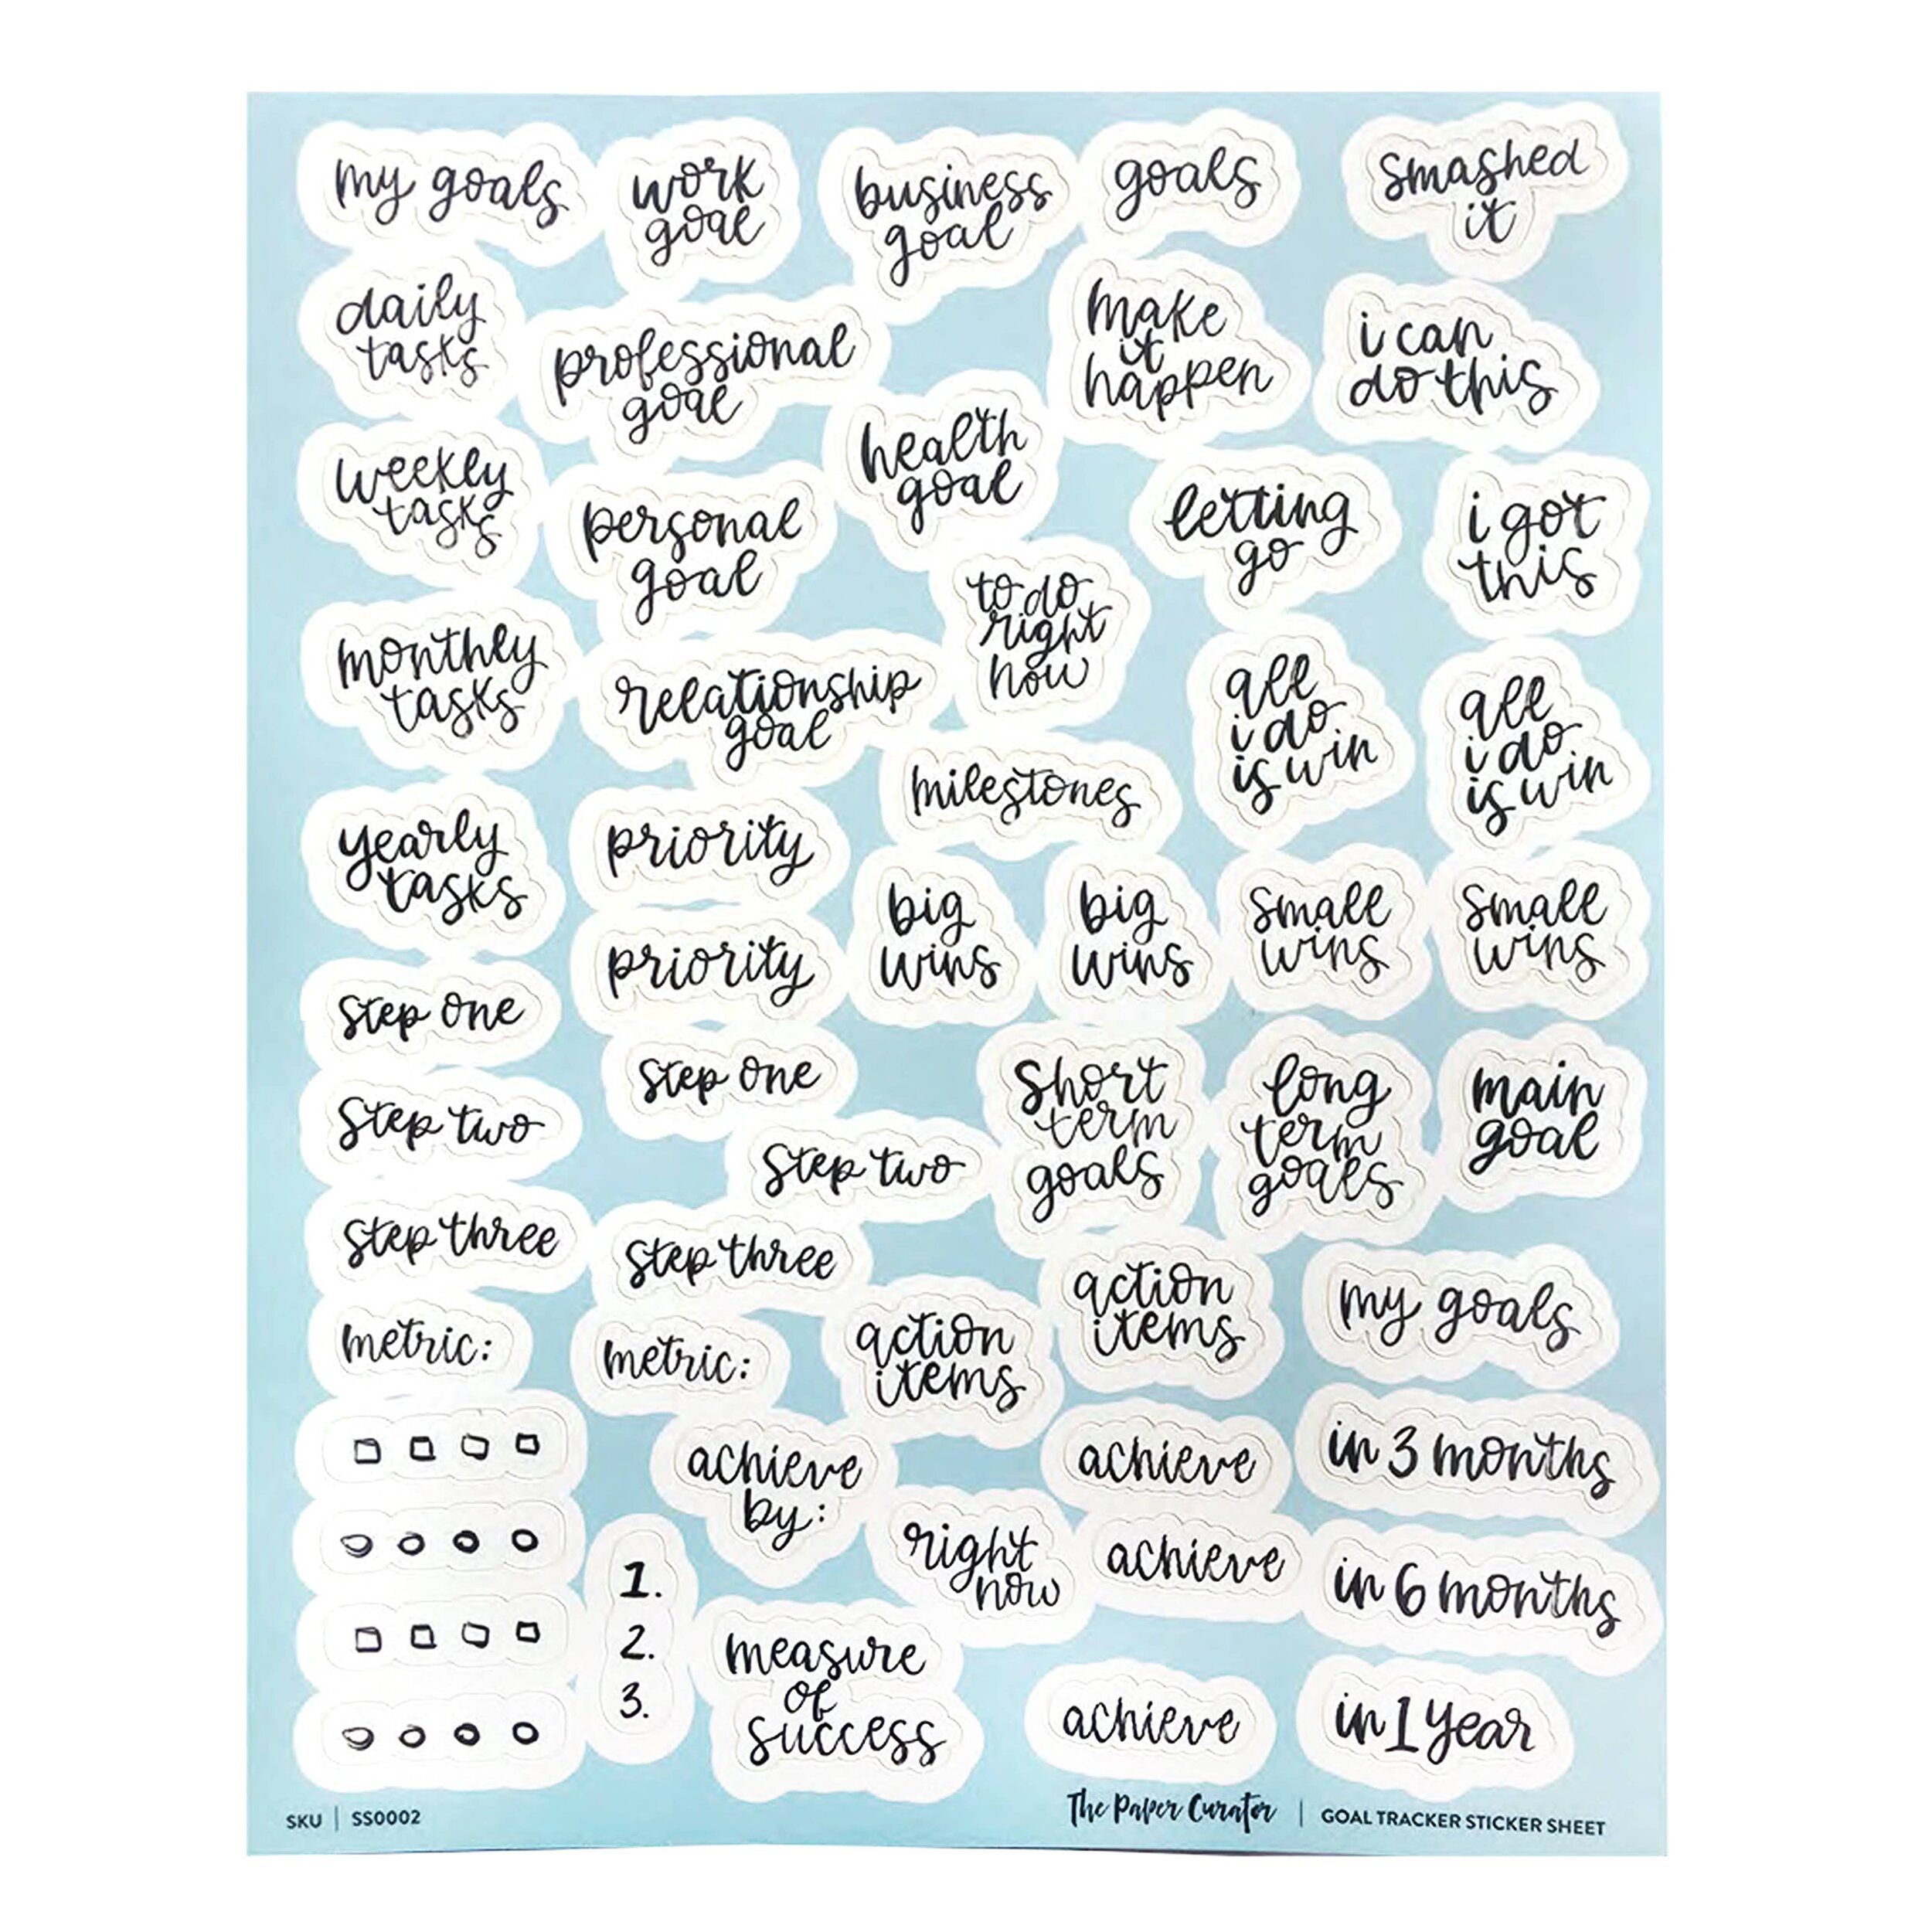 my goals
work
goal
business
goal
goals
smashed
it
daily
tasks
professional
goal
make
it
happen
i can
do this
weekly
tasks
personal
goal
health
goal
letting
go
i got
this
monthly
tasks
relationship
goal
to do
right
now
all
i do
is win
all
i do
is win
milestones
yearly
tasks
priority
priority
big
wins
big
wins
small
wins
small
wins
step one
step one
short
term
goals
long
term
goals
main
goal
step two
step two
step three
step three
action
items
action
items
my goals
metric:
metric:
achieve
by:
achieve
in 3 months
right
now
achieve
in 6 months
1.
2.
3.
measure
of
success
achieve
in 1 year
SKU | SS0002
The Paper Curator | GOAL TRACKER STICKER SHEET